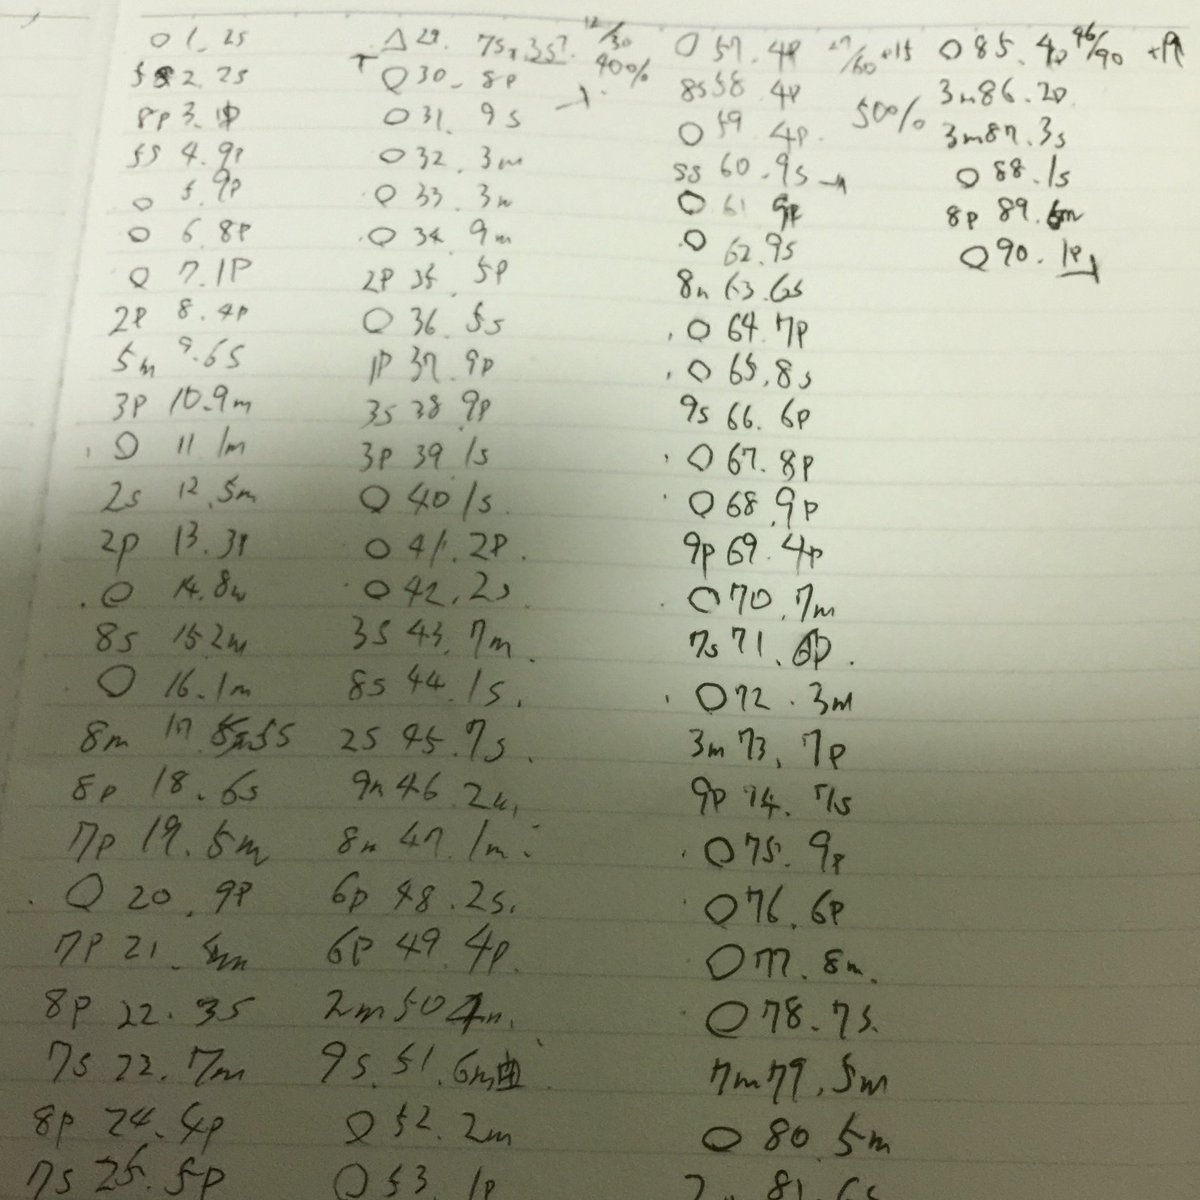 ○ 1. 2s
2. 2s
8p 3. 1p
5s 4. 9p
○ 5. 9p
○ 6. 8p
○ 7. 1P
2p 8. 4p
5m 9. 6s
3p 10. 9m
○ 11 1m
2s 12. 5m
2p 13. 3p
○ 14. 8m
8s 15 2m
○ 16. 1m
8m 17. 5s
8p 18. 6s
7p 19. 5m
○ 20. 9p
7p 21.
8p 22. 3s
7s 23. 7m
8p 24. 4p
7s 25. 5p
△ 29. 7s, 3s? 12/30
40%
○ 30. 8p
○ 31. 9s
○ 32. 3m
○ 33. 3m
○ 34. 9m
2P 35. 5P
○ 36. 5s
1P 37. 9p
3s 38 9p
3p 39 1s
○ 40 1s
○ 41. 2P.
○ 42. 2s
3s 43. 7m.
8s 44. 1s.
2s 45. 7s.
9m 46. 2m
8m 47. 1m.
6p 48. 2s.
6p 49. 4p.
2m 50
9s. 51. 6m
○ 52. 2m
○ 53. 1p
○ 57. 4p 27/60 +15
8s 58 4p 50%
○ 59 4p.
5s 60. 9s
○ 61 9p
○ 62. 9s
8m 63. 6s
○ 64. 7p
○ 65. 8s
9s 66. 6p
○ 67. 8p
○ 68. 9p
9p 69. 4p
○ 70. 7m
7s 71. 6p.
○ 72. 3m
3m 73. 7p
9p 74. 7s
○ 75. 9p
○ 76. 6p
○ 77. 8m.
○ 78. 7s.
7m 79. 5m
○ 80. 5m
81. 6s
○ 85. 4p 46/90 +19
3m 86. 2p
3m 87. 3s
○ 88. 1s
8p 89. 6m
○ 90. 1p